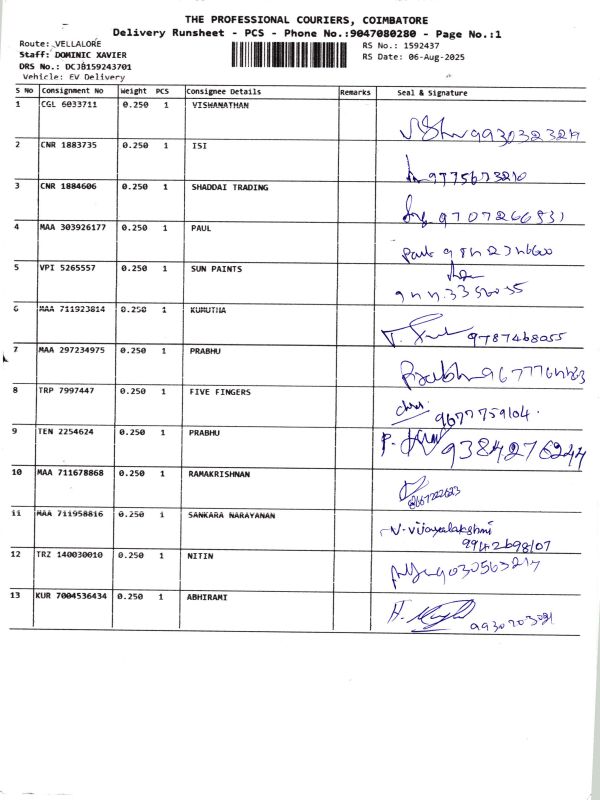 THE PROFESSIONAL COURIERS, COIMBATORE
Delivery Runsheet - PCS - Phone No.:9047080280 - Page No.:1
Route: VELLALORE
RS No.: 1592437
Staff: DOMINIC XAVIER
RS Date: 06-Aug-2025
DRS No.: DCJB159243701
Vehicle: EV Delivery
S No Consignment No Weight PCS Consignee Details Remarks Seal & Signature
1 CGL 6033711 0.250 1 VISWANATHAN
9930323219
2 CNR 1883735 0.250 1 ISI
9775673210
3 CNR 1884606 0.250 1 SHADDAI TRADING
9707266531
4 MAA 303926177 0.250 1 PAUL
Paul
5 VPI 5265557 0.250 1 SUN PAINTS
6 MAA 711923814 0.250 1 KUMUTHA
9787468055
7 MAA 297234975 0.250 1 PRABHU
Prabhu
8 TRP 7997447 0.250 1 FIVE FINGERS
9677759104.
9 TEN 2254624 0.250 1 PRABHU
9384276244
10 MAA 711678868 0.250 1 RAMAKRISHNAN
11 MAA 711958816 0.250 1 SANKARA NARAYANAN
V. Vijayalakshmi
12 TRZ 140030010 0.250 1 NITIN
9030563217
13 KUR 7004536434 0.250 1 ABHIRAMI